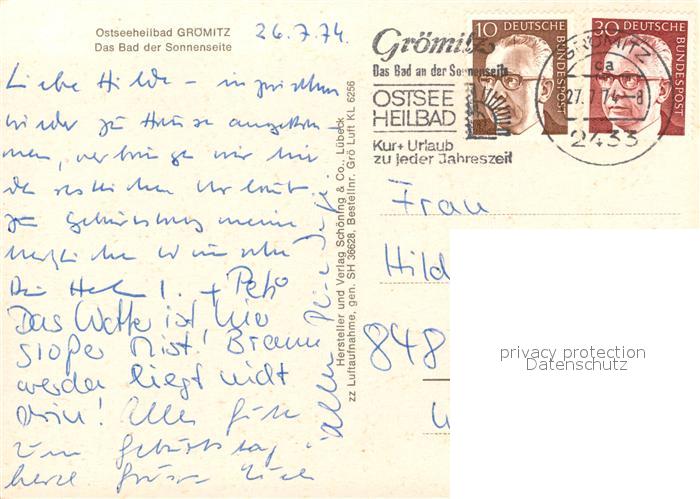 Ostseeheilbad GRÖMITZ
Das Bad der Sonnenseite
26.7.74.
Liebe Hilde – inzwischen
wieder zu Hause angekom-
men, verbringe wir hier
den restlichen Urlaub.
Zum Geburtstag meine
herzlichen Wünsche
Dein + Peter
Das Wetter ist hier
großer Mist! Braun
werden liegt nicht
drin! Alles Gute
zum Geburtstag
herzl. Grüße
alles
Hersteller und Verlag Schöning & Co., Lübeck
zz Luftaufnahme, gen. SH 36628, Bestellnr. Grö Luft KL 6256
Grömitz
Das Bad an der Sonnenseite
OSTSEE
HEILBAD
Kur + Urlaub
zu jeder Jahreszeit
10 DEUTSCHE
BUNDESPOST
30 DEUTSCHE
BUNDESPOST
GRÖMITZ
ca
27.7.74–8
2433
Frau
Hild
848
privacy protection
Datenschutz